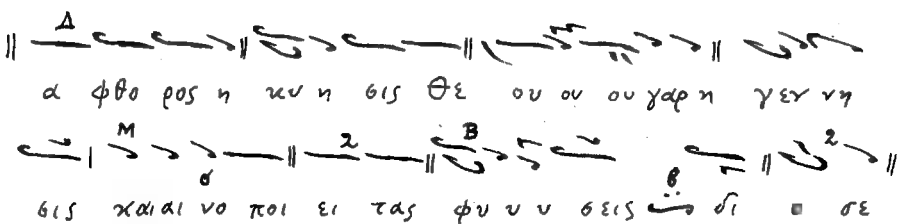 α φθο ρος η κυ η σις Θε ου ου ου γαρ η γεν νη
σις και αι νο ποι ει τας φυ υ υ σεις δι ο σε